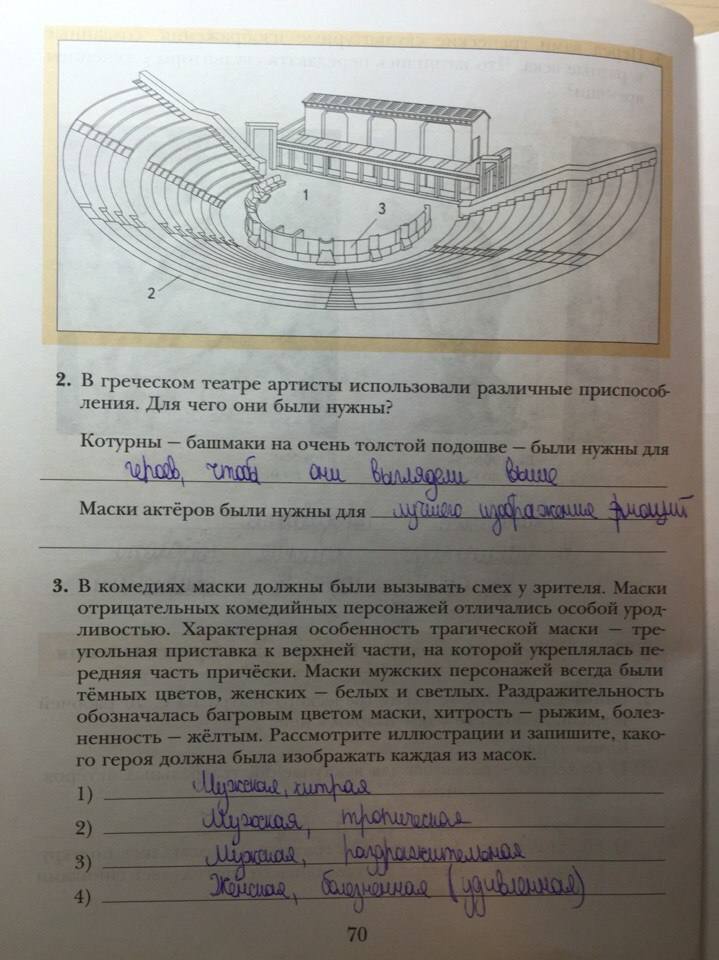 1
3
2
2. В греческом театре артисты использовали различные приспособ-
ления. Для чего они были нужны?
Котурны – башмаки на очень толстой подошве – были нужны для
героев, чтобы они выглядели выше
Маски актёров были нужны для лучшего изображения эмоций
3. В комедиях маски должны были вызывать смех у зрителя. Маски
отрицательных комедийных персонажей отличались особой урод-
ливостью. Характерная особенность трагической маски – тре-
угольная приставка к верхней части, на которой укреплялась пе-
редняя часть причёски. Маски мужских персонажей всегда были
тёмных цветов, женских – белых и светлых. Раздражительность
обозначалась багровым цветом маски, хитрость – рыжим, болез-
ненность – жёлтым. Рассмотрите иллюстрации и запишите, како-
го героя должна была изображать каждая из масок.
1) Мужская, хитрая
2) Мужская,
3) Мужская, раздражительная
4) Женская, болезненная (удивленная)
70